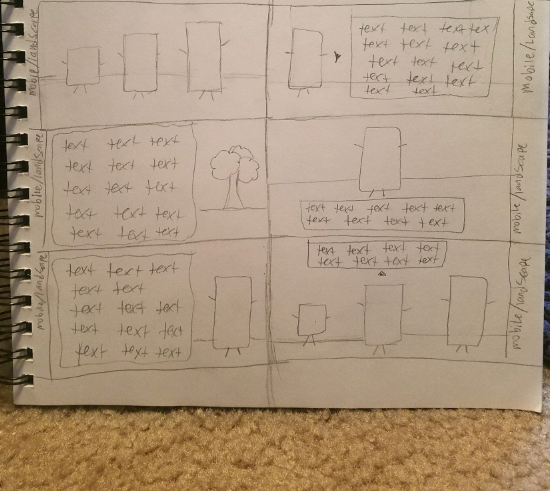 mobile/landscape
text text text text
text text text
text text text
text text text
text text
mobile/landscape
mobile/landscape
text text text
text text text
text text text
text text text
text text text
text text text text text
text text text text
mobile/landscape
mobile/landscape
text text text
text text
text text text
text text text
text text text
text text text text
text text text text
mobile/landscape